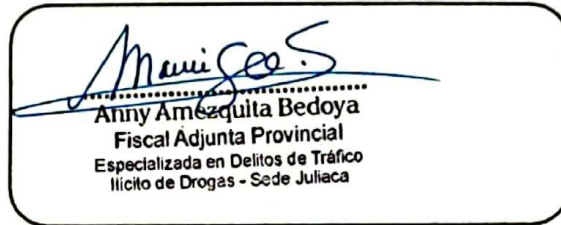 Anny Amézquita Bedoya
Fiscal Adjunta Provincial
Especializada en Delitos de Tráfico
Ilícito de Drogas - Sede Juliaca